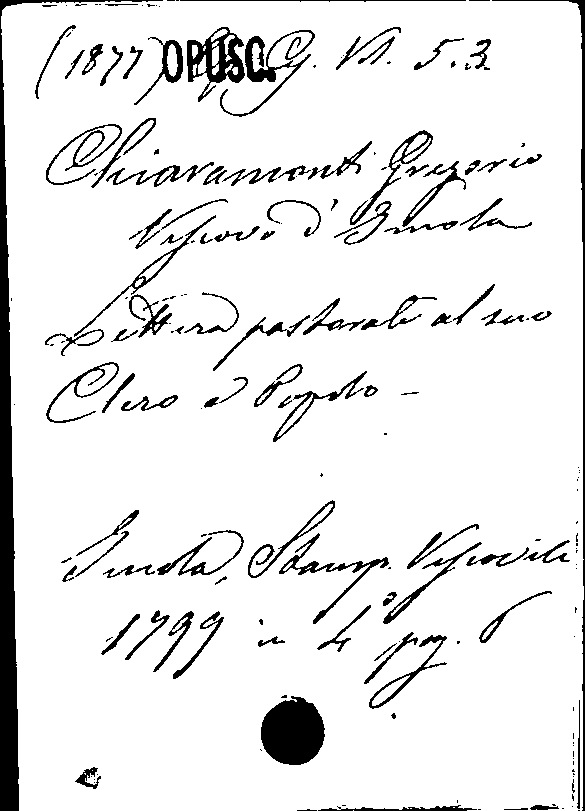 (1877) OPUSC. G. VI. 5.3.
Chiaramonti Gregorio
Vescovo d'Imola
Lettera pastorale al suo
Clero e Popolo -
Imola, Stamp. Vescovile
1799 in 4° pag. 6